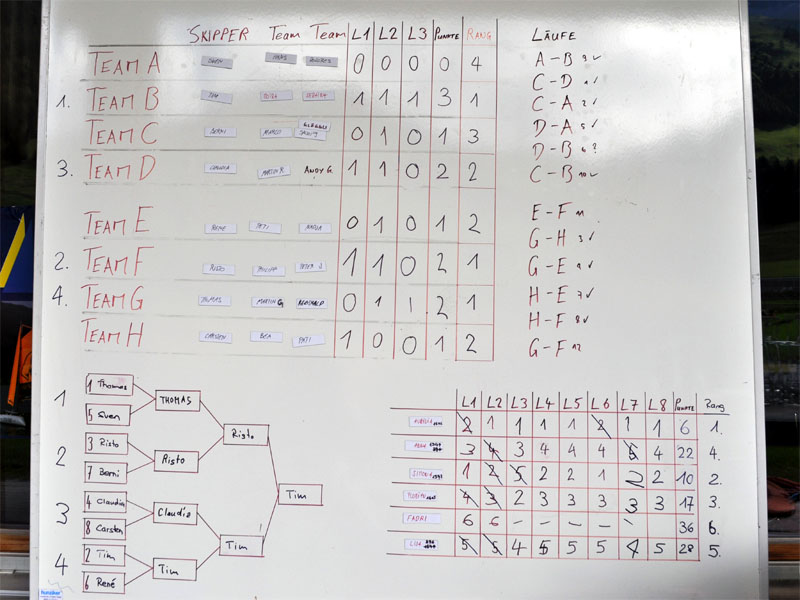 SKIPPER Team Team L1 L2 L3 PUNKTE RANG
TEAM A 0 0 0 0 4
1. TEAM B 1 1 1 3 1
TEAM C BERNI MARCO 0 1 0 1 3
3. TEAM D CLAUDIA MARTIN R ANDY G. 1 1 0 2 2
TEAM E RENÉ PATI NADIA 0 1 0 1 2
2. TEAM F RISTO PHILIPP PETER J 1 1 0 2 1
4. TEAM G THOMAS MARTIN G REINHARD 0 1 1 2 1
TEAM H CARSTEN BEA PATI 1 0 0 1 2
LÄUFE
A-B 9✓
C-D 1✓
C-A 2✓
D-A 5✓
D-B 6?
C-B 10✓
E-F 11
G-H 3✓
G-E 4✓
H-E 7✓
H-F 8✓
G-F 12
1 1 Thomas
5 Sven
THOMAS
2 3 Risto
7 Berni
Risto
Risto
3 4 Claudia
8 Carsten
Claudia
4 2 Tim
6 René
Tim
Tim
Tim
L1 L2 L3 L4 L5 L6 L7 L8 PUNKTE Rang
2 1 1 1 1 2 1 1 6 1.
3 4 3 4 4 4 5 4 22 4.
1 2 5 2 2 1 2 2 10 2.
4 3 2 3 3 3 3 3 17 3.
FADRI 6 6 – – – – – 36 6.
5 5 4 5 5 5 4 5 28 5.